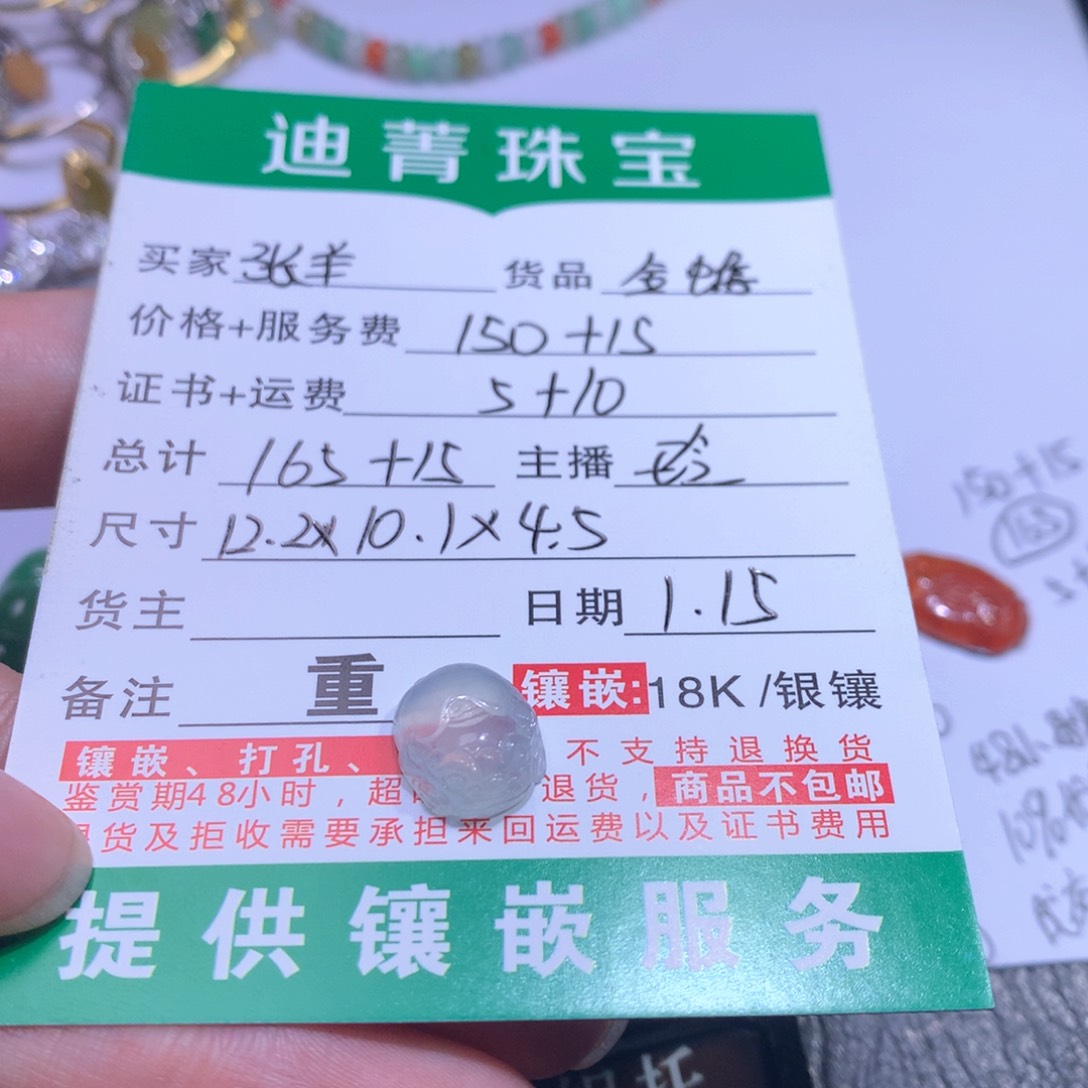 迪菁珠宝
买家 张羊 货品 金蟾
价格+服务费 150+15
证书+运费 5+10
总计 165+15 主播
尺寸 12.2×10.1×4.5
货主 日期 1.15
备注 重 镶嵌:18K/银镶
镶嵌、打孔、 不支持退换货
鉴赏期48小时，超 退货，商品不包邮
货及拒收需要承担来回运费以及证书费用
提供镶嵌服务
150+15
165